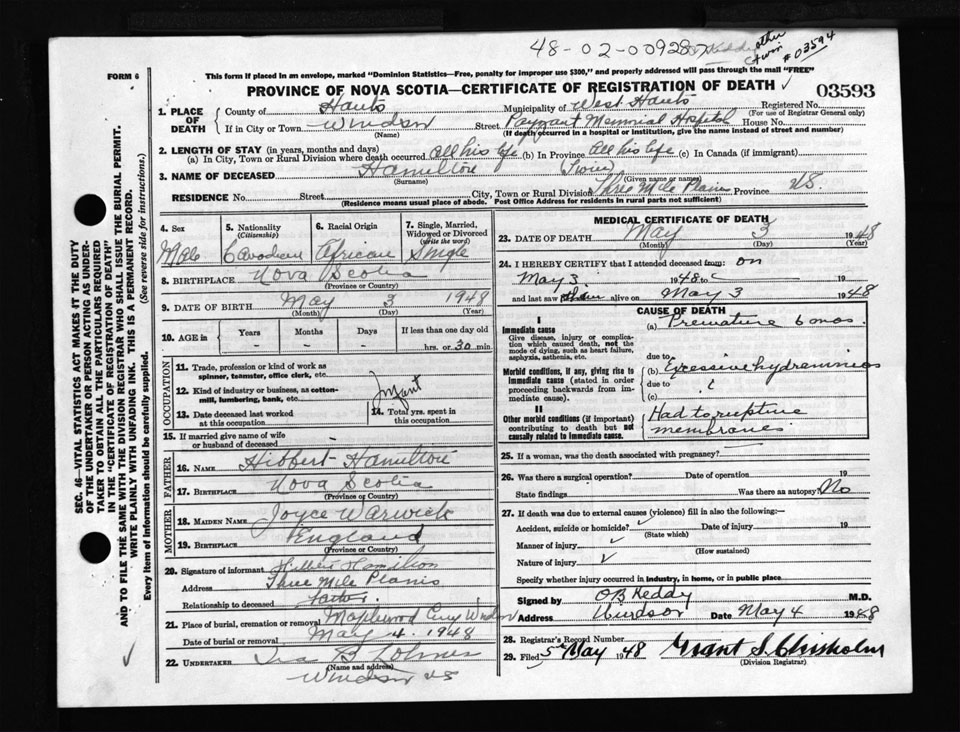 48-02-009287
other
twin
# 03594
FORM 6
This form if placed in an envelope, marked "Dominion Statistics—Free, penalty for improper use $300," and properly addressed will pass through the mail "FREE"
PROVINCE OF NOVA SCOTIA—CERTIFICATE OF REGISTRATION OF DEATH ✓ 03593
1. PLACE OF DEATH
County of Hants Municipality of West Hants Registered No.
(For use of Registrar General only)
If in City or Town Windsor Street Payzant Memorial Hospital House No.
(Name) (If death occurred in a hospital or institution, give the name instead of street and number)
2. LENGTH OF STAY (in years, months and days)
(a) In City, Town or Rural Division where death occurred All his life (b) In Province All his life (c) In Canada (if immigrant)
3. NAME OF DECEASED Hamilton Twin
(Surname) (Given name or names)
RESIDENCE No. Street City, Town or Rural Division Three Mile Plains Province N.S.
(Residence means usual place of abode. Post Office Address for residents in rural parts not sufficient)
4. Sex
Male
5. Nationality
(Citizenship)
Canadian
6. Racial Origin
African
7. Single, Married, Widowed or Divorced
(write the word)
Single
8. BIRTHPLACE Nova Scotia
(Province or Country)
9. DATE OF BIRTH May 3 1948
(Month) (Day) (Year)
10. AGE in Years Months Days If less than one day old
hrs. or 30 min
OCCUPATION
11. Trade, profession or kind of work as spinner, teamster, office clerk, etc.
12. Kind of industry or business, as cotton-mill, lumbering, bank, etc.
Infant
13. Date deceased last worked at this occupation
14. Total yrs. spent in this occupation
15. If married give name of wife or husband of deceased
FATHER
16. NAME Hibbert Hamilton
17. BIRTHPLACE Nova Scotia
(Province or Country)
MOTHER
18. MAIDEN NAME Joyce Warwick
19. BIRTHPLACE England
(Province or Country)
20. Signature of informant Hibbert Hamilton
Address Three Mile Plains
Relationship to deceased father
21. Place of burial, cremation or removal Maplewood Cemy Windsor
Date of burial or removal May 4. 1948
22. UNDERTAKER Ira B
(Name and address)
Windsor NS
MEDICAL CERTIFICATE OF DEATH
23. DATE OF DEATH May 3 1948
(Month) (Day) (Year)
24. I HEREBY CERTIFY that I attended deceased from: on
May 3 1948 to 19
and last saw him alive on May 3 1948
CAUSE OF DEATH
I
Immediate cause
Give disease, injury or complication which caused death, not the mode of dying, such as heart failure, asphyxia, asthenia, etc.
(a) Premature 6 mos.
due to
Morbid conditions, if any, giving rise to immediate cause (stated in order proceeding backwards from immediate cause).
(b) Excessive hydramnios
due to
(c)
II
Other morbid conditions (if important) contributing to death but not causally related to immediate cause.
Had to rupture
membranes
25. If a woman, was the death associated with pregnancy?
26. Was there a surgical operation? Date of operation 19
State findings Was there an autopsy? No
27. If death was due to external causes (violence) fill in also the following:—
Accident, suicide or homicide? ✓ Date of injury 19
(State which)
Manner of injury ✓
(How sustained)
Nature of injury ✓
Specify whether injury occurred in industry, in home, or in public place
Signed by OB Keddy M.D.
Address Windsor Date May 4 1948
28. Registrar's Record Number
29. Filed 5th May 1948 Grant S. Chisholm
(Division Registrar)
SEC. 46—VITAL STATISTICS ACT MAKES IT THE DUTY
OF THE UNDERTAKER OR PERSON ACTING AS UNDER-
TAKER TO OBTAIN ALL THE PARTICULARS REQUIRED
IN THE "CERTIFICATE OF REGISTRATION OF DEATH"
AND TO FILE THE SAME WITH THE DIVISION REGISTRAR WHO SHALL ISSUE THE BURIAL PERMIT.
WRITE PLAINLY WITH UNFADING INK. THIS IS A PERMANENT RECORD.
Every item of information should be carefully supplied. (See reverse side for instructions.)
✓